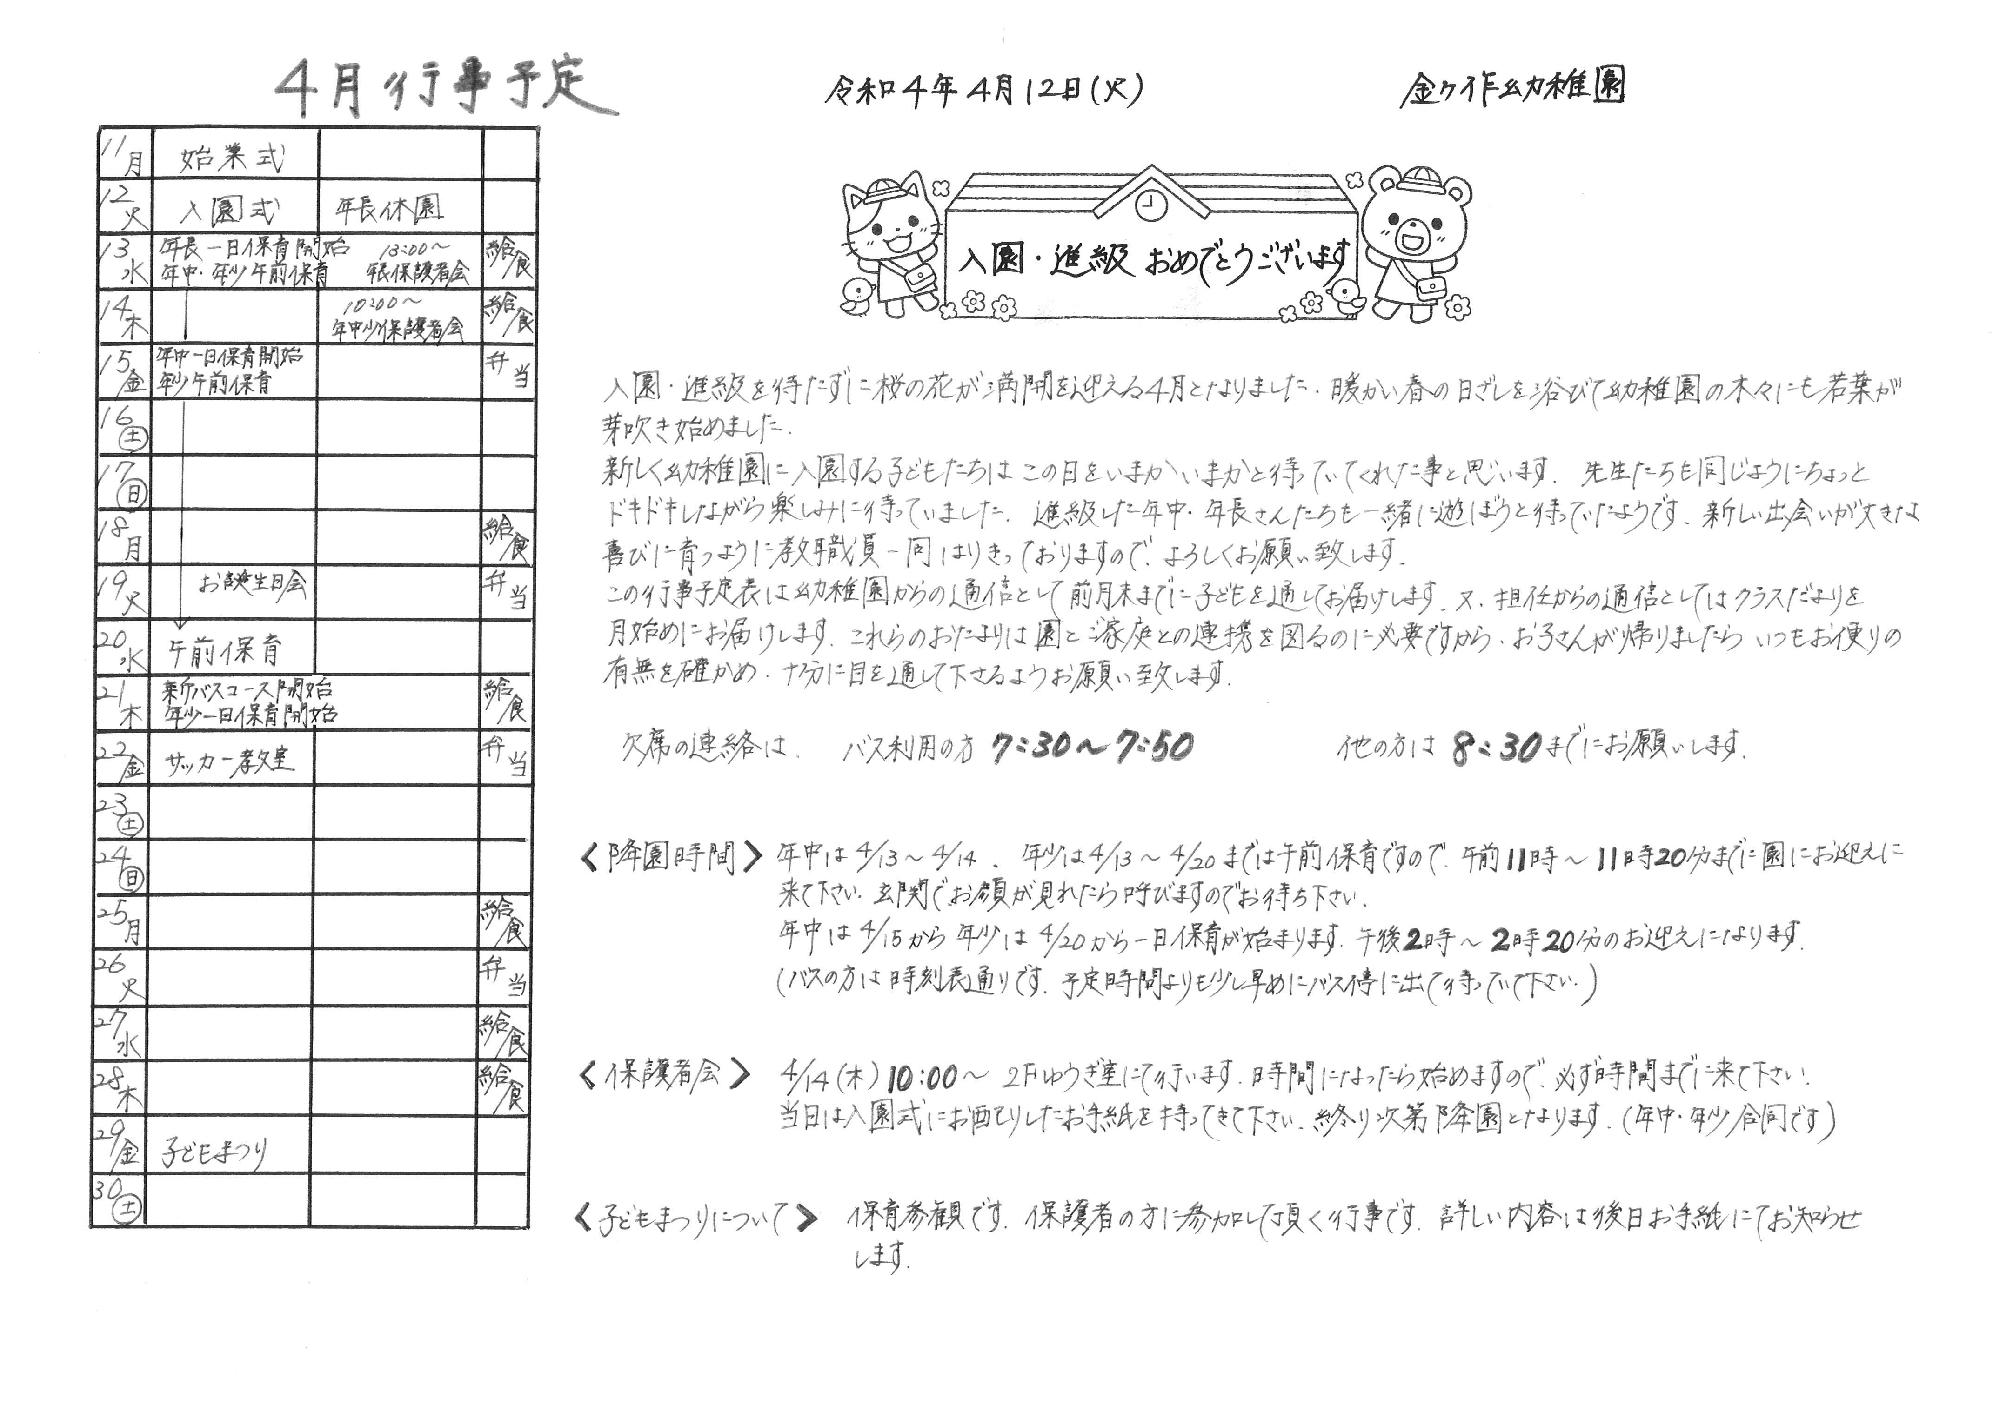 4月行事予定
令和4年4月12日(火)
金ヶ作幼稚園
11月 始業式
12火 入園式 年長休園
13水 年長一日保育開始 13:00～ 給食
年中・年少午前保育 年長保護者会
14木 10:00～ 給食
年中少保護者会
15金 年中一日保育開始 弁当
年少午前保育
16土
17日
18月 給食
19火 お誕生日会 弁当
20水 午前保育
21木 新バスコース開始 給食
年少一日保育開始
22金 サッカー教室 弁当
23土
24日
25月 給食
26火 弁当
27水 給食
28木 給食
29金 子どもまつり
30土
入園・進級 おめでとうございます
入園・進級を待たずに桜の花が満開を迎える4月となりました。暖かい春の日ざしを浴びて幼稚園の木々にも若葉が
芽吹き始めました。
新しく幼稚園に入園する子どもたちはこの日をいまかいまかと待っていてくれた事と思います。先生たちも同じようにちょっと
ドキドキしながら楽しみに待っていました。進級した年中・年長さんたちも一緒に遊ぼうと待っていたようです。新しい出会いが大きな
喜びに育つように教職員一同はりきっておりますので、よろしくお願い致します。
この行事予定表は幼稚園からの通信として前月末までに子どもを通してお届けします。又、担任からの通信としてはクラスだよりを
月始めにお届けします。これらのおたよりは園とご家庭との連携を図るのに必要ですから、お子さんが帰りましたらいつもお便りの
有無を確かめ、十分に目を通して下さるようお願い致します。
欠席の連絡は、 バス利用の方 7:30～7:50 他の方は 8:30までにお願いします。
<降園時間> 年中は4/13～4/14、年少は4/13～4/20までは午前保育ですので、午前11時～11時20分までに園にお迎えに
来て下さい。玄関でお顔が見れたら呼びますのでお待ち下さい。
年中は4/15から年少は4/20から一日保育が始まります。午後2時～2時20分のお迎えになります。
(バスの方は時刻表通りです。予定時間よりも少し早めにバス停に出て待っていて下さい。)
<保護者会> 4/14(木)10:00～ 2Fゆうぎ室にて行います。時間になったら始めますので、必ず時間までに来て下さい。
当日は入園式にお配りしたお手紙を持ってきて下さい。終り次第降園となります。(年中・年少合同です)
<子どもまつりについて> 保育参観です。保護者の方に参加して頂く行事です。詳しい内容は後日お手紙にてお知らせ
します。